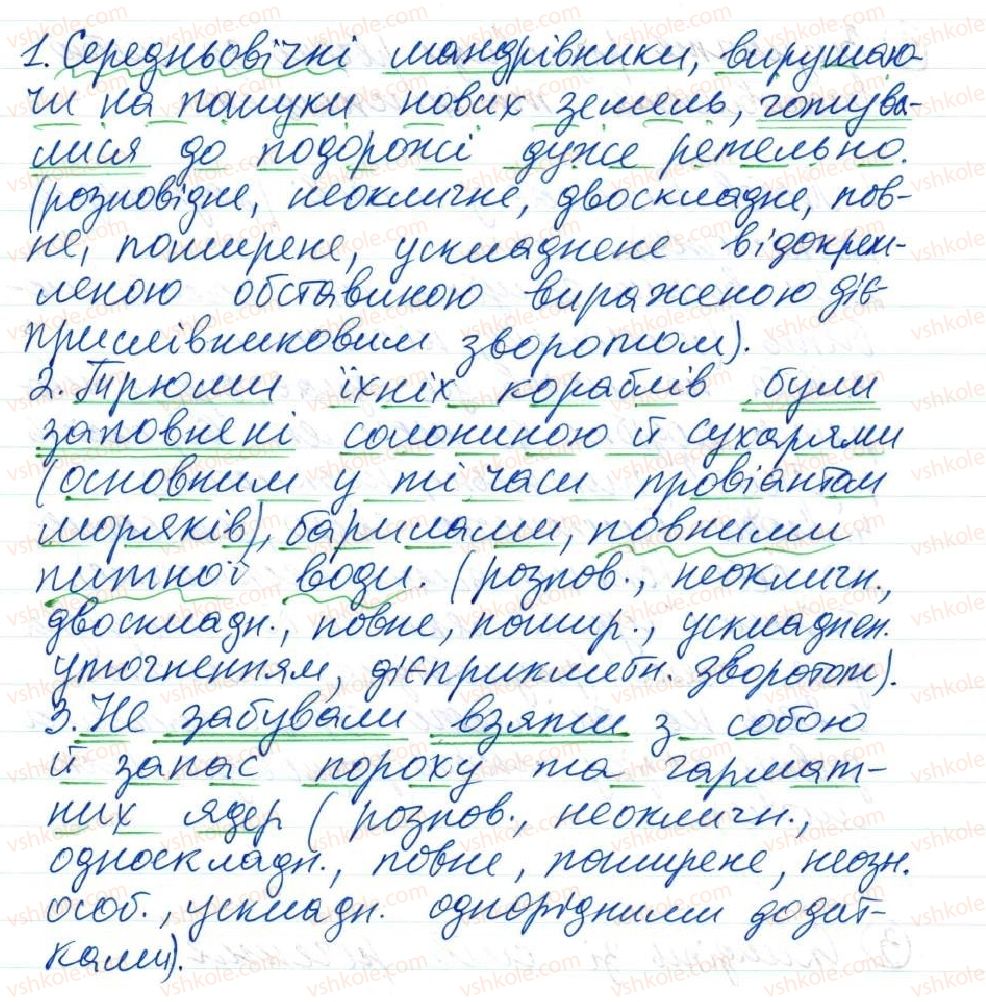 1. Середньовічні мандрівники, вирушаю-
чи на пошуки нових земель, готува-
лися до подорожі дуже ретельно.
(розповідне, неокличне, двоскладне, пов-
не, поширене, ускладнене відокрем-
леною обставиною вираженою діє
прислівниковим зворотом).
2. Трюми їхніх кораблів були
заповнені солониною й сухарями
(основним у ті часи провіантом
моряків), барилами, повними
питної води. (розпов., неокличн.,
двоскладн., повне, пошир., ускладнен.
уточненням, дієприкметн. зворотом).
3. Не забували взяти з собою
й запас пороху та гармат-
них ядер (розпов., неокличн.,
односкладн., повне, поширене, неозн.
особ., ускладн. однорідними додат-
ками).